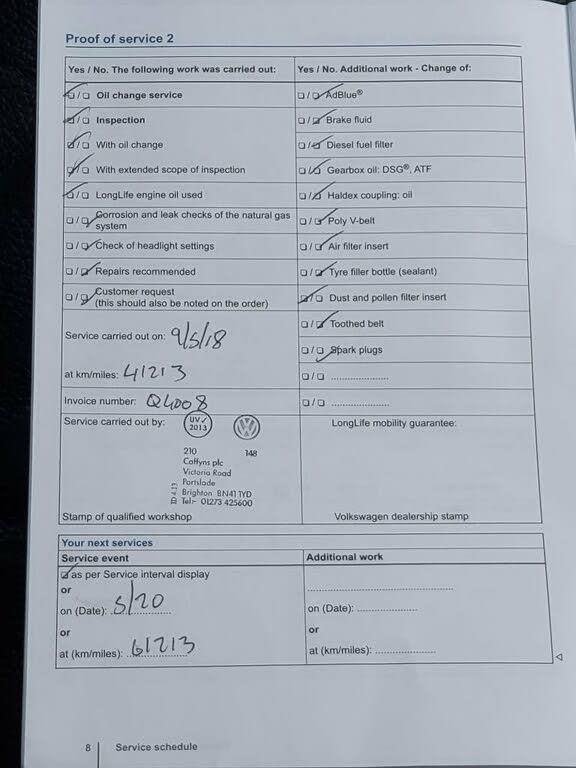 Proof of service 2
Yes / No. The following work was carried out:
☑/☐ Oil change service
☑/☐ Inspection
☑/☐ With oil change
☑/☐ With extended scope of inspection
☑/☐ LongLife engine oil used
☐/☑ Corrosion and leak checks of the natural gas
system
☐/☑ Check of headlight settings
☐/☑ Repairs recommended
☐/☑ Customer request
(this should also be noted on the order)
Service carried out on: 9/5/18
at km/miles: 41213
Invoice number: Q4008
Service carried out by:
UV✓
2013
VW
210 148
Caffyns plc
Victoria Road
Portslade
Brighton BN41 1YD
Tel:- 01273 425600
ID 4.13
Stamp of qualified workshop
Yes / No. Additional work - Change of:
☐/☑ AdBlue®
☐/☑ Brake fluid
☐/☑ Diesel fuel filter
☐/☑ Gearbox oil: DSG®, ATF
☐/☑ Haldex coupling: oil
☐/☑ Poly V-belt
☐/☑ Air filter insert
☐/☑ Tyre filler bottle (sealant)
☑/☐ Dust and pollen filter insert
☐/☑ Toothed belt
☐/☑ Spark plugs
☐/☐ ....................
☐/☐ ....................
LongLife mobility guarantee:
Volkswagen dealership stamp
Your next services
Service event
☑ as per Service interval display
or
on (Date): 5/20
or
at (km/miles): 61213
Additional work
..................................................
on (Date): ....................
or
at (km/miles): ....................
8 Service schedule